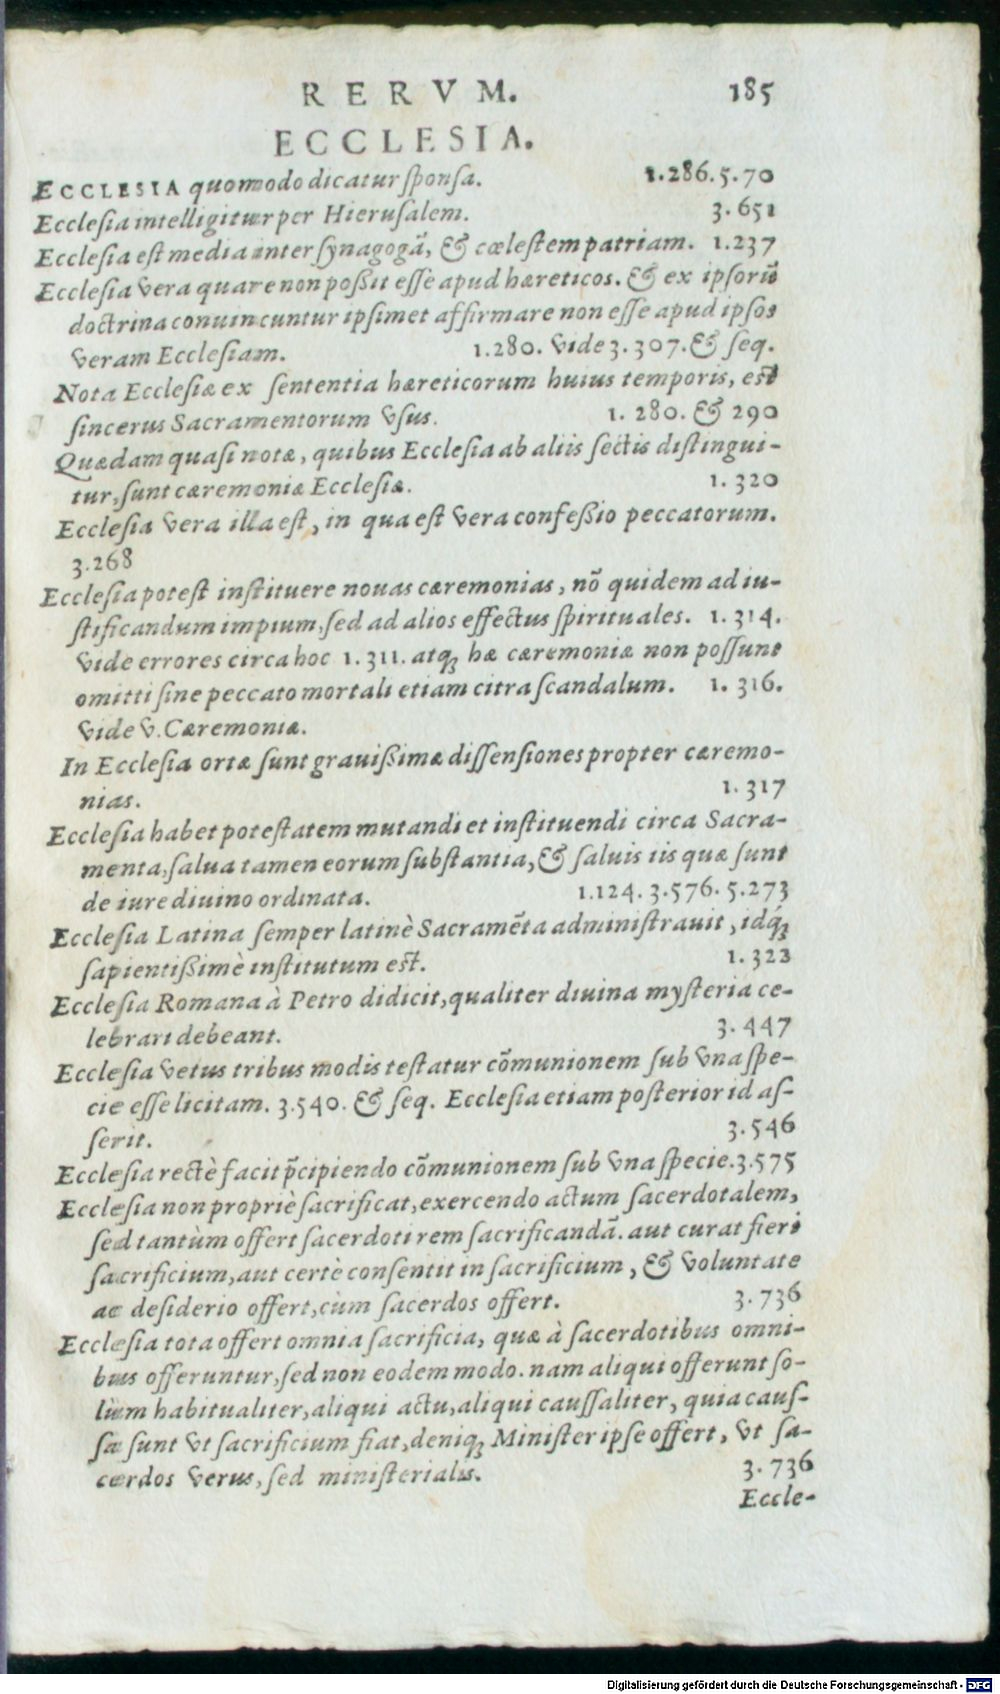 RERVM. 185
ECCLESIA.
ECCLESIA quomodo dicatur ſponſa. 1.286.5.70
Eccleſia intelligitur per Hieruſalem. 3.651
Eccleſia eſt media inter ſynagogā, & cœleſtem patriam. 1.237
Eccleſia vera quare non poßit eſſe apud hæreticos. & ex ipſorū
doctrina conuincuntur ipſimet affirmare non eſſe apud ipſos
veram Eccleſiam. 1.280. vide 3.307. & ſeq.
Nota Eccleſiæ ex ſententia hæreticorum huius temporis, eſt
ſincerus Sacramentorum vſus. 1. 280. & 290
Quædam quaſi notæ, quibus Eccleſia ab aliis ſectis diſtingui-
tur, ſunt cæremoniæ Eccleſiæ. 1.320
Eccleſia vera illa eſt, in qua eſt vera confeßio peccatorum.
3.268
Eccleſia poteſt inſtituere nouas cæremonias, nō quidem ad iu-
ſtificandum impium, ſed ad alios effectus ſpirituales. 1.314.
vide errores circa hoc 1.311. atq; hæ cæremoniæ non poſſunt
omitti ſine peccato mortali etiam citra ſcandalum. 1.316.
vide v. Cæremoniæ.
In Eccleſia ortæ ſunt grauißimæ diſſenſiones propter cæremo-
nias. 1.317
Eccleſia habet poteſtatem mutandi et inſtituendi circa Sacra-
menta, ſalua tamen eorum ſubſtantia, & ſaluis iis quæ ſunt
de iure diuino ordinata. 1.124. 3.576. 5.273
Eccleſia Latina ſemper latinè Sacramēta adminiſtrauit, idq́;
ſapientißimè inſtitutum eſt. 1.323
Eccleſia Romana à Petro didicit, qualiter diuina myſteria ce-
lebrari debeant. 3.447
Eccleſia vetus tribus modis teſtatur cōmunionem ſub vna ſpe-
cie eſſe licitam. 3.540. & ſeq. Eccleſia etiam poſterior id aſ-
ſerit. 3.546
Eccleſia rectè facit p̄cipiendo cōmunionem ſub vna ſpecie. 3.575
Eccleſia non propriè ſacrificat, exercendo actum ſacerdotalem,
ſed tantùm offert ſacerdoti rem ſacrificandā. aut curat fieri
ſacrificium, aut certè conſentit in ſacrificium, & voluntate
ac deſiderio offert, cùm ſacerdos offert. 3.736
Eccleſia tota offert omnia ſacrificia, quæ à ſacerdotibus omni-
bus offeruntur, ſed non eodem modo. nam aliqui offerunt ſo-
lùm habitualiter, aliqui actu, aliqui cauſſaliter, quia cauſ-
ſæ ſunt vt ſacrificium fiat, deniq; Miniſter ipſe offert, vt ſa-
cerdos verus, ſed miniſterialis. 3.736
Eccle-
Digitalisierung gefördert durch die Deutsche Forschungsgemeinschaft - DFG